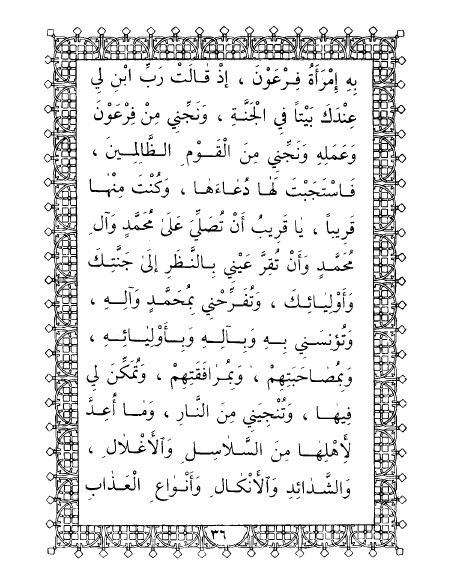 بِهِ إِمْرَأَةُ فِرْعَوْنَ ، إِذْ قٰالَتْ رَبِّ ابْنِ لِي
عِنْدَكَ بَيْتاً فِي الْجَنَّةِ ، وَنَجِّنِي مِنْ فِرْعَوْنَ
وَعَمَلِهِ وَنَجِّنِي مِنَ الْقَوْمِ الظَّالِمِينَ ،
فَاسْتَجَبْتَ لَهٰا دُعٰاءَهٰا ، وَكُنْتَ مِنْهٰا
قَرِيباً ، يٰا قَرِيبُ أَنْ تُصَلِّيَ عَلىٰ مُحَمَّدٍ وَآلِ
مُحَمَّدٍ وَأَنْ تُقِرَّ عَيْنِي بِالنَّظَرِ إِلىٰ جَنَّتِكَ
وَأَوْلِيٰائِكَ ، وَتُفَرِّحَنِي بِمُحَمَّدٍ وَآلِهِ ،
وَتُؤنِسَنِي بِهِ وَبِآلِهِ وَبِأَوْلِيٰائِهِ ،
وَبِمُصٰاحَبَتِهِمْ ، وَبِمُرٰافَقَتِهِمْ ، وَتُمَكِّنَ لِي
فِيهٰا ، وَتُنْجِيَنِي مِنَ النَّارِ ، وَمٰا أُعِدَّ
لِأَهْلِهٰا مِنَ السَّلٰاسِلِ وَالْأَغْلٰالِ ،
وَالشَّدٰائِدِ وَالْأَنْكٰالِ وَأَنْوٰاعِ الْعَذٰابِ
٣٦